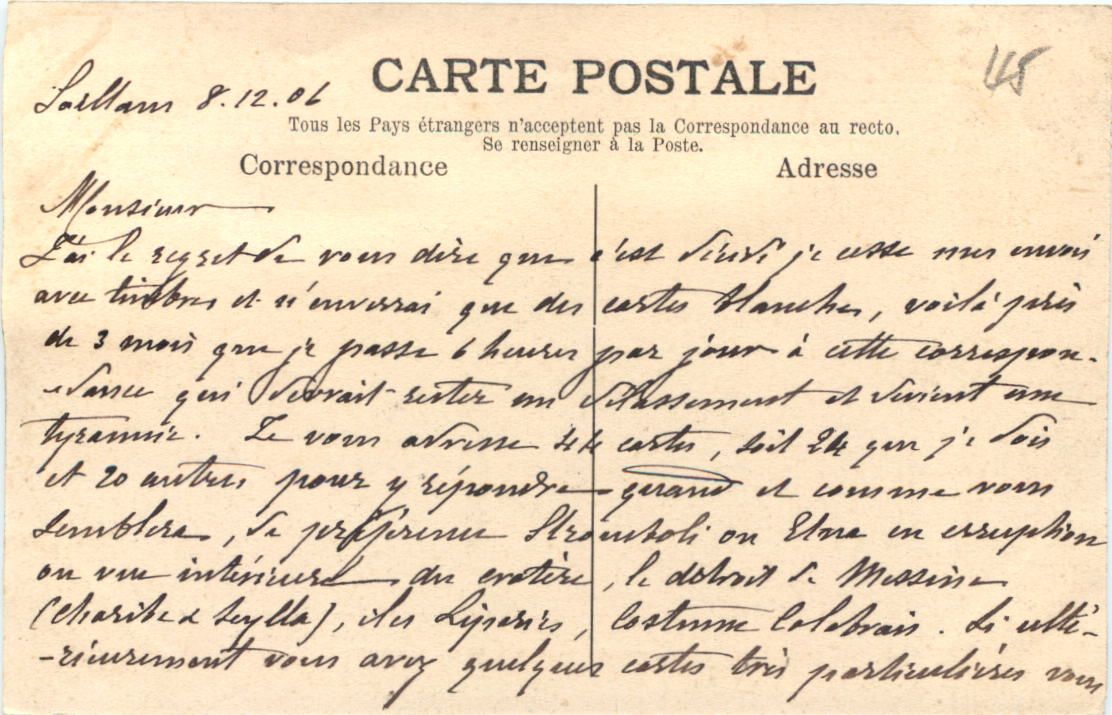 CARTE POSTALE
45
Saillans 8.12.06
Tous les Pays étrangers n'acceptent pas la Correspondance au recto.
Se renseigner à la Poste.
Correspondance
Adresse
Monsieur
J'ai le regret de vous dire que c'est décidé je cesse mes envois
avec timbres et n'enverrai que des cartes blanches, voilà près
de 3 mois que je passe 6 heures par jour à cette correspon-
-dance qui devrait rester un délassement et devient une
tyrannie. Je vous adresse 44 cartes, soit 24 que je dois
et 20 autres pour y répondre quand et comme vous
semblera, de préférence Stromboli ou Etna en erruption
ou vue intérieure du cratère, le detroit de Messine
(Charibe & Scylla), iles Liparies, Costume Calabrais. Si ulté-
-rieurement vous avez quelques cartes très particulières vous